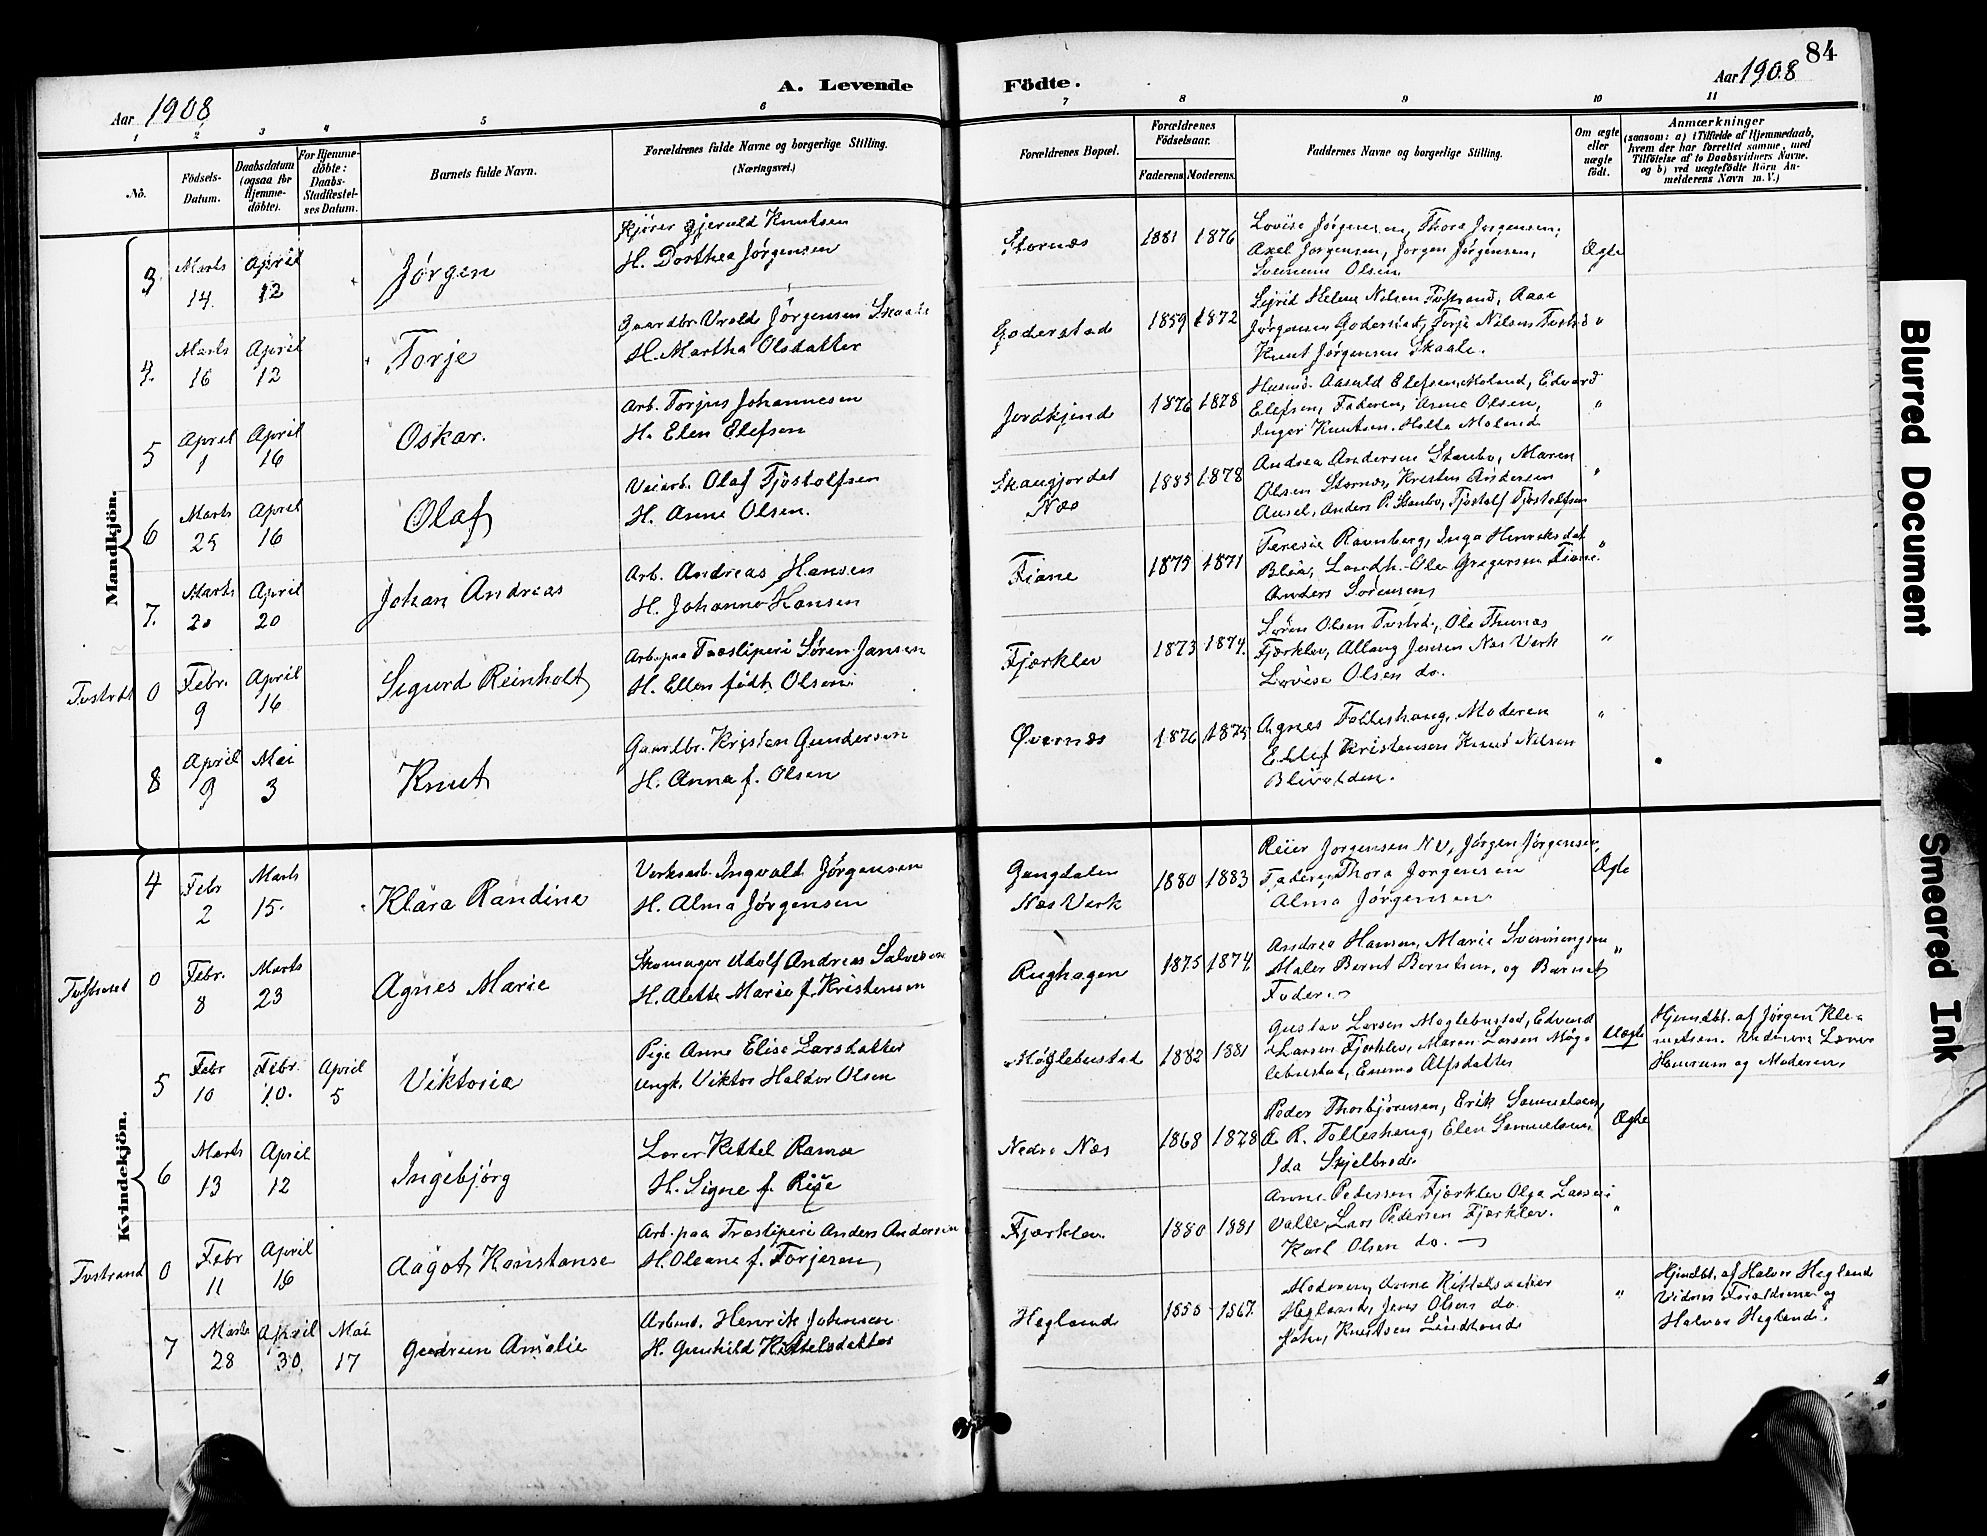 84
Aar 1908
A. Levende
Födte.
Aar 1908
1 2 3 4 5 6 7 8 9 10 11
Nö.
Födsels-
Datum.
Daabsdatum
(ogsaa for
Hjemme-
döbte).
For Hjemme-
döbte:
Daabs-
Stadfæstel-
ses Datum.
Barnets fulde Navn.
Forældrenes fulde Navne og borgerlige Stilling.
(Næringsvei.)
Forældrenes Bopæl.
Forældrenes
Födselsaar.
Faderens. Moderens.
Faddernes Navne og borgerlige Stilling.
Om ægte
eller
uægte
födt.
Anmærkninger
(saasom: a) i Tilfælde af Hjemmedaab,
hvem der har forrettet samme, med
Tilföielse af to Daabsvidners Navne.
og b) ved uægtefödte Börn An-
melderens Navn m. V.)
Mandkjön.
3 Marts 14 April 12
Jørgen
Kjører Gjeruld Knutsen
H. Dorthea Jørgensen
Stornæs
1881 1876
Lovise Jørgensen, Thora Jørgensen,
Axel Jørgensen, Jørgen Jørgensen,
Olsen
Ægte
4. Marts 16 April 12
Torje
Gaardbr. Jørgensen Skaale
H. Martha Olsdatter
Goderstad
1859 1872
Sigrid Helene Nilsen Tvstrand, Aase
Jørgensen Goderstad, Torje Nilsen Tvstrd
Knut Jørgensen Skaale.
"
5 April 1 April 16
Oskar.
Arb. Torjus Johannesen
H. Elen Elefsen
Jordkjend
1876 1878
Aasuld Elefsen, Moland, Edvard
Elefsen, Faderen, Anne Olsen,
Inger Knutsen. Holte Moland
"
6 Marts 25 April 16
Olaf
Veiarb. Olaf Fjostolfsen
H. Anne Olsen.
Skaugjordet
Næs
1885 1878
Andrea Andersen Staubo, Maren
Olsen Stornæs, Kristen Andersen
Anders P. Staubo, Fjostolf Fjostolfsen
"
7. Marts 20 April 20
Johan Andreas
Arb. Andreas Hansen
H. Johanne Hansen
Fiane
1875 1871
Teresie Ravnberg, Inga Henriksdat
Blea, Landh. Ole Gregersen Fiane.
Anders Sørensen
"
Tvstrd 0 Febr. 9 April 16
Sigurd Reinholt
Arb. paa Træsliperi Søren Jansen
H. Ellen født Olsen.
Fjærklev
1873 1874.
Søren Olsen Tvstrd., Ole Thunæs
Fjærklev, Jensen Næs Verk
Lovise Olsen do.
"
8 April 9 Mai 3
Knut
Gaardbr. Kristen Gundersen
H. Anna f. Olsen
Øvernæs
1876 1875
Agnes Tolleshaug, Moderen
Ellef Kristensen Knud Nilsen
"
Kvindekjön.
4 Febr 2 Marts 15.
Klara Randine
Verksarb. Ingvald Jørgensen
H. Alma Jørgensen
Gangdalen
Næs Verk
1880 1883
Reier Jorgensen NV, Jørgen Jørgensen,
Faderen, Thora Jørgensen
Alma Jørgensen
Ægte
Tvstrand 0 Febr. 8 Marts 23
Agnes Marie
Skomager Adolf Andreas Salvesen
H. Alette Marie f. Kristensen
Rughagen
1875 1874
Andrea Hansen, Marie Svenningsen
Maler Bernt Berntsen, og Barnets
Fader.
"
5 Febr 10 Febr. 10. April 5
Viktoria
Pige Anne Elise Larsdatter
Ungk. Viktor Haldor Olsen
Møglebustad
1882 1881
Gustav Larsen Møglebustad, Edvard
Larsen Fjærklev, Maren Larsen Møg-
lebustad, Emma Alfsdatter
Uægte
Hjemdbt. af Jørgen Kle-
metsen. Vidnerne
og Moderen.
6 Marts 13 April 12
Ingebjörg
Lærer Kittel Ramse
H. Signe f. Rise
Nedre Næs
1868 1878
Peder Thorbjørnsen, Erik Samuelsen,
A. R. Tolleshaug, Elen Samuelsen,
Ida Skjelbred.
Ægte
Tvstrand 0 Febr 11 April 16
Aagot Konstanse
Arb. paa Træsliperi Anders Andersen
H. Oleane f. Torjesen
Fjærklev
1880 1881
Anne Pedersen Fjærklev Olga Larsen
Valle, Lars Pedersen Fjærklev.
Karl Olsen do.
"
7 Marts 28 April 30 Mai 17
Gudrun Amalie
Arbmd. Henrik Johnsen
H. Gunhild Kittelsdatter
Hegland
1850 1867.
Moderen, Anne Kittelsdatter
Hegland, Jens Olsen do.
John Knutsen Lindland
"
Hjmdbt. af Halvor Hegland
Vidner: Forældrene og
Halvor Hegland.
Blurred Document
Smeared Ink